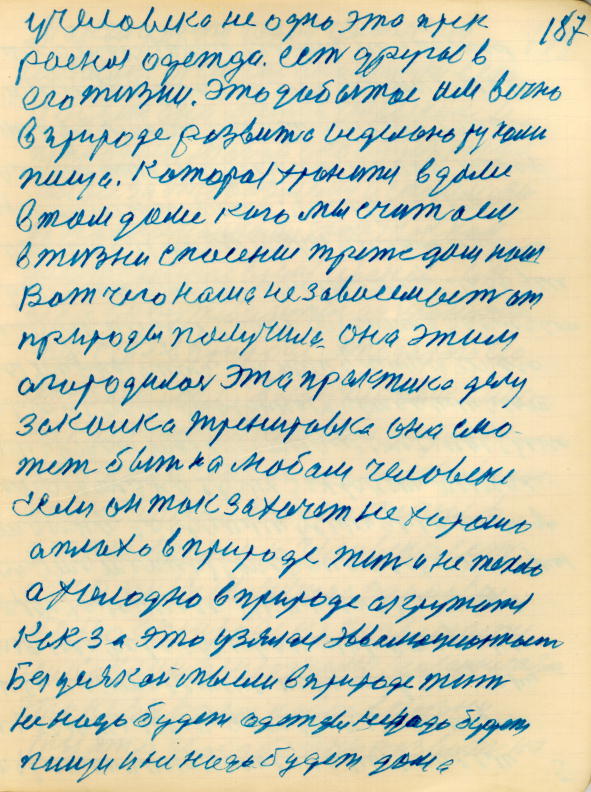 187
учеловека не одно эта прек
расная одежда. есть другое в
его жизни. Это добытое им вечно
в природе развито и сделано руками
пища. Которая хранится в доме
в том доме кого мы считаем
в жизни спасение трете дом наш
Вот чего наша независемость от
природы получила она этим
огородилася Эта практика делу
закалка тренировка она смо-
жет быть на любом человеке
Если он так захочет не хорошо
а плохо в природе жить и не тепло
а холодно в природе
Как за это узялся
Без усякой мысли в природе жить
не надо будет одежды не надо будет
пищи и не надо будет дома